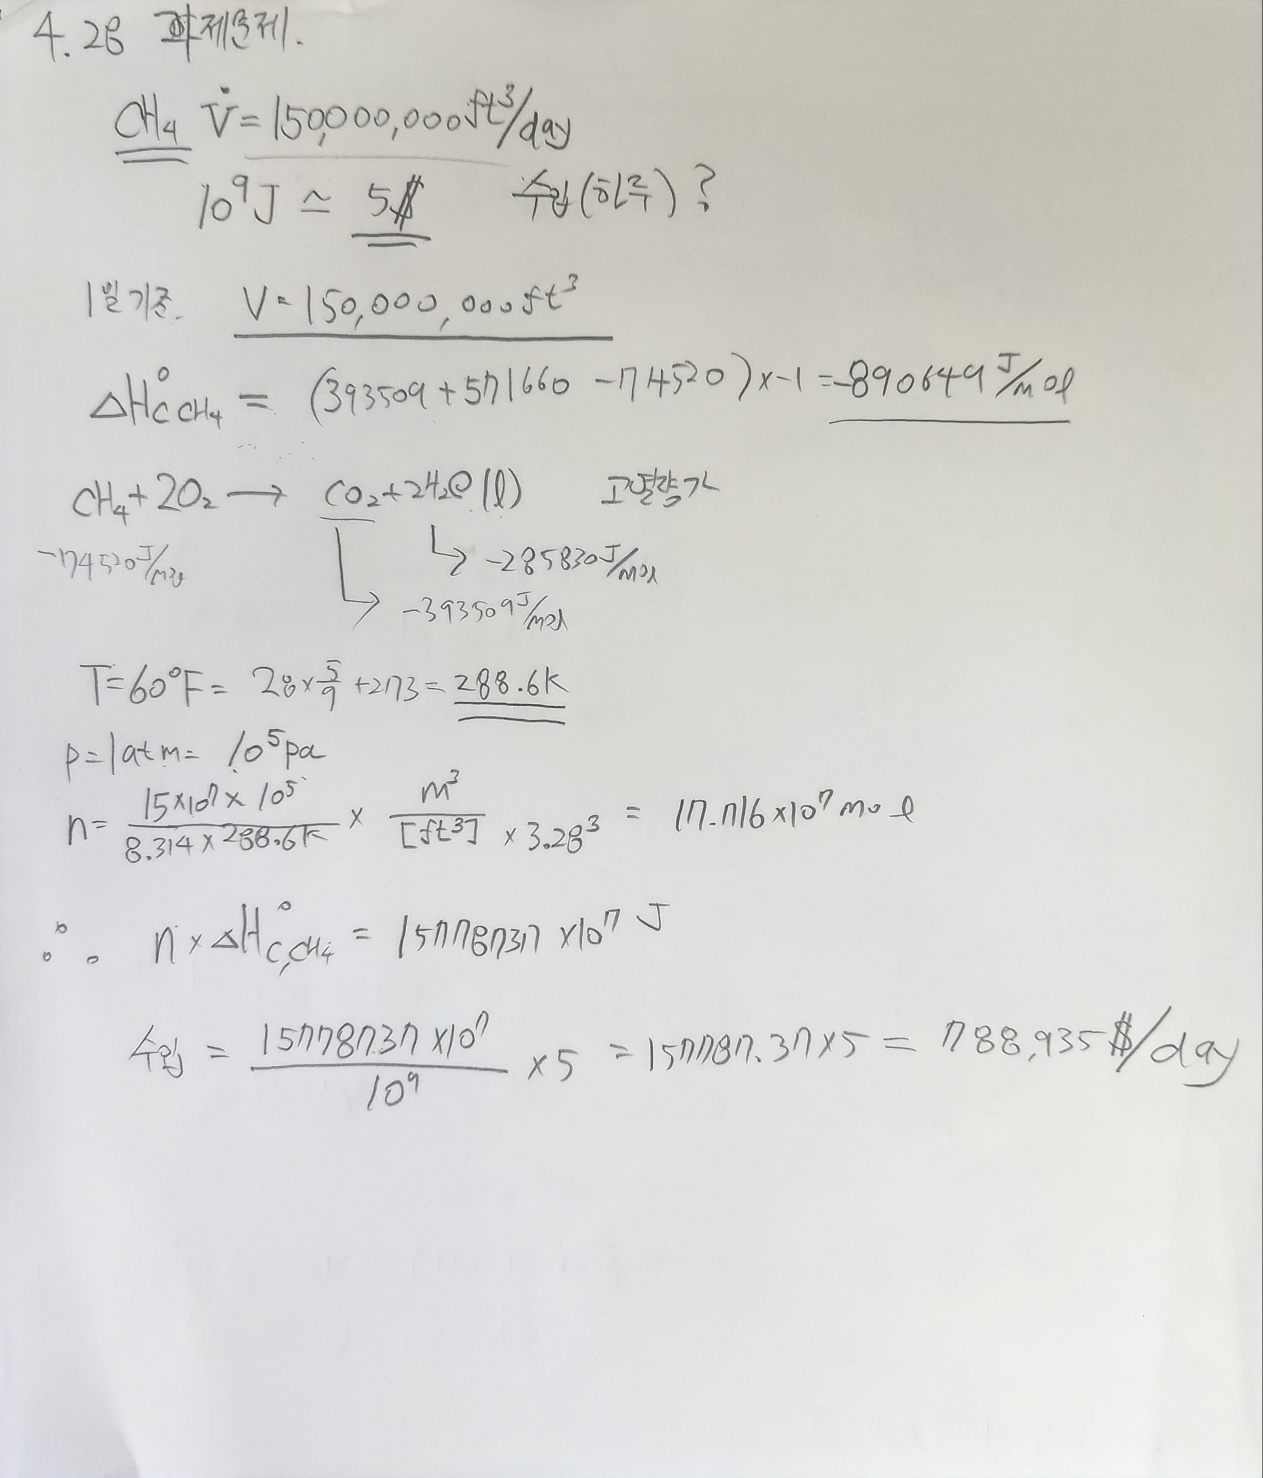 4.28 과제문제.
CH4 V̇=150,000,000ft³/day
10⁹J ≃ 5$ 수입(하루)?
1일기준. V=150,000,000ft³
ΔH°C CH4 = (393509+571660-74520)×-1=-890649 J/mol
CH4+2O2 → CO2+2H2O(l) 고열량가
-74520J/mol ↳ -285830J/mol
↳ -393509J/mol
T=60°F= 28×5/9+273=288.6K
P=1atm= 10⁵pa
n= 15×10⁷×10⁵/8.314×288.6K × m³/[ft³]×3.28³ = 17.716×10⁷mol
∴ n×ΔH°C,CH4 = 15778737×10⁷ J
수입 = 15778737×10⁷/10⁹ ×5 =157787.37×5= 788,935$/day